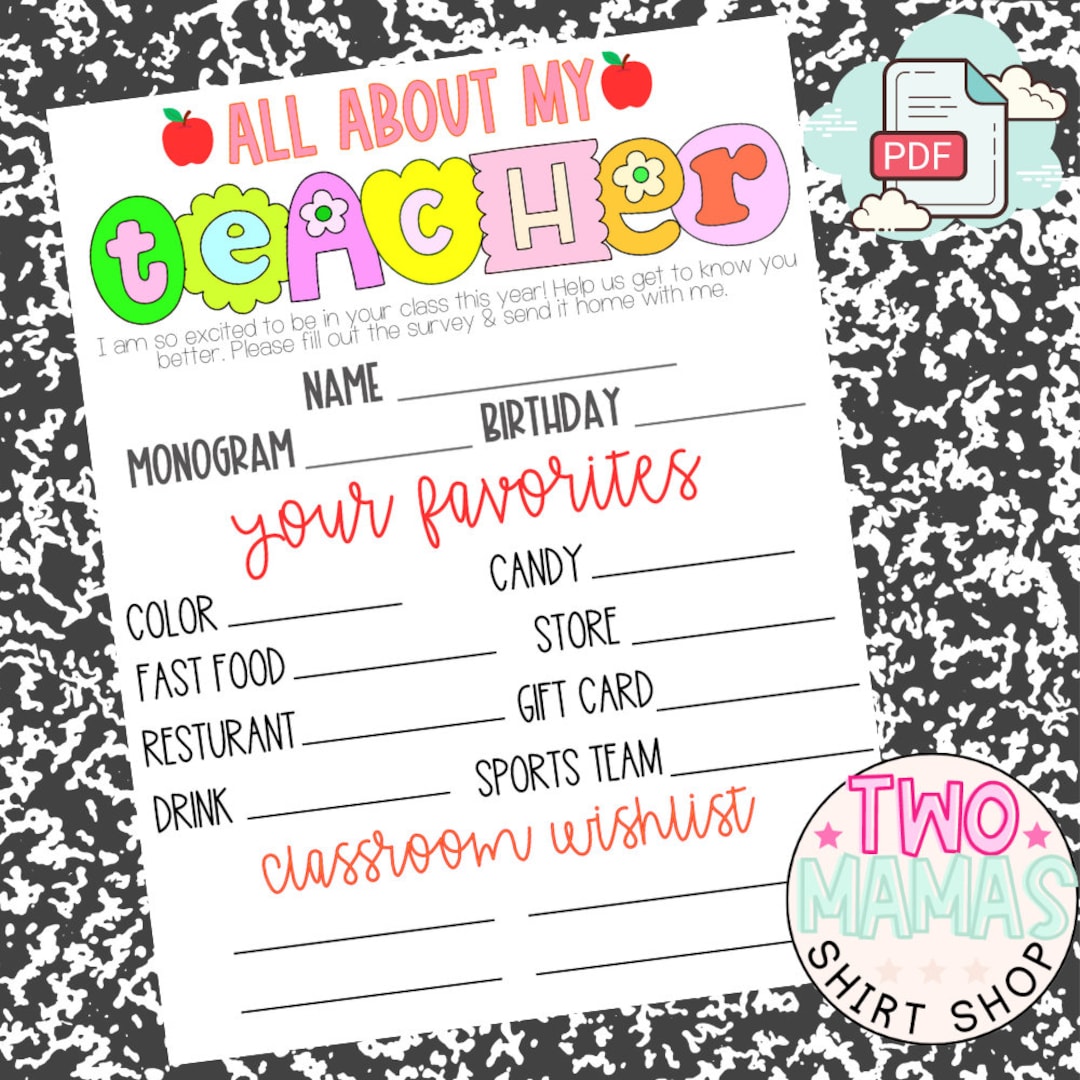 ALL ABOUT MY
teAcHer
I am so excited to be in your class this year! Help us get to know you
better. Please fill out the survey & send it home with me.
NAME
MONOGRAM BIRTHDAY
your favorites
COLOR CANDY
FAST FOOD STORE
RESTURANT GIFT CARD
DRINK SPORTS TEAM
classroom wishlist
PDF
TWO
MAMAS
SHIRT SHOP